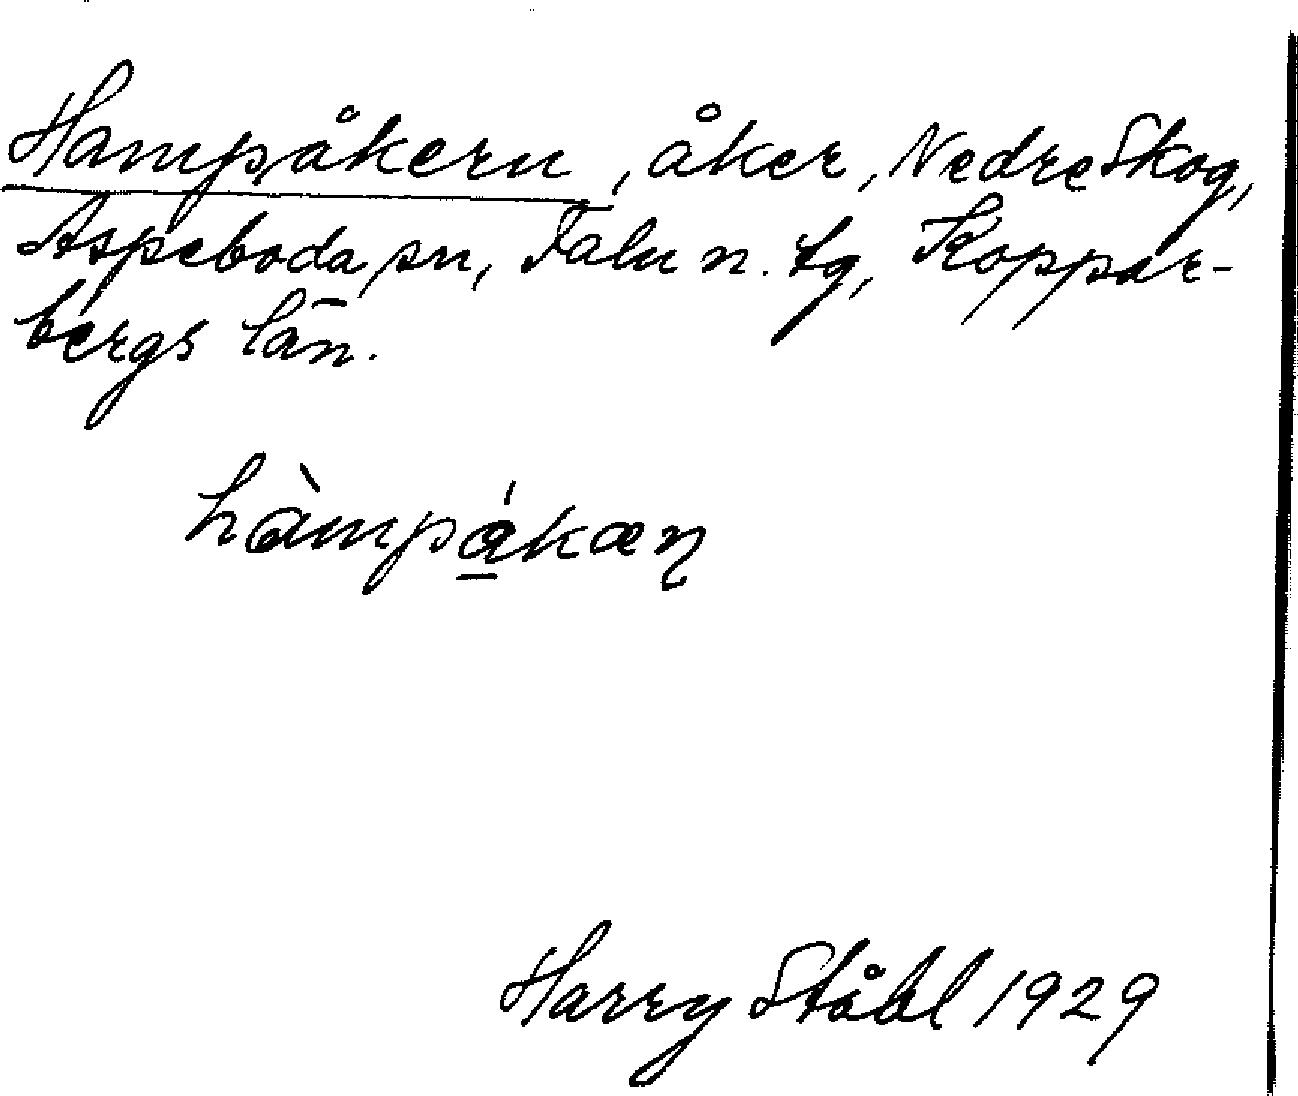 Hampåkern, åker, Nedre Skog,
Aspeboda sn, Falu n. tg, Koppar-
bergs län.
hàmpákæn
Harry Ståhl 1929